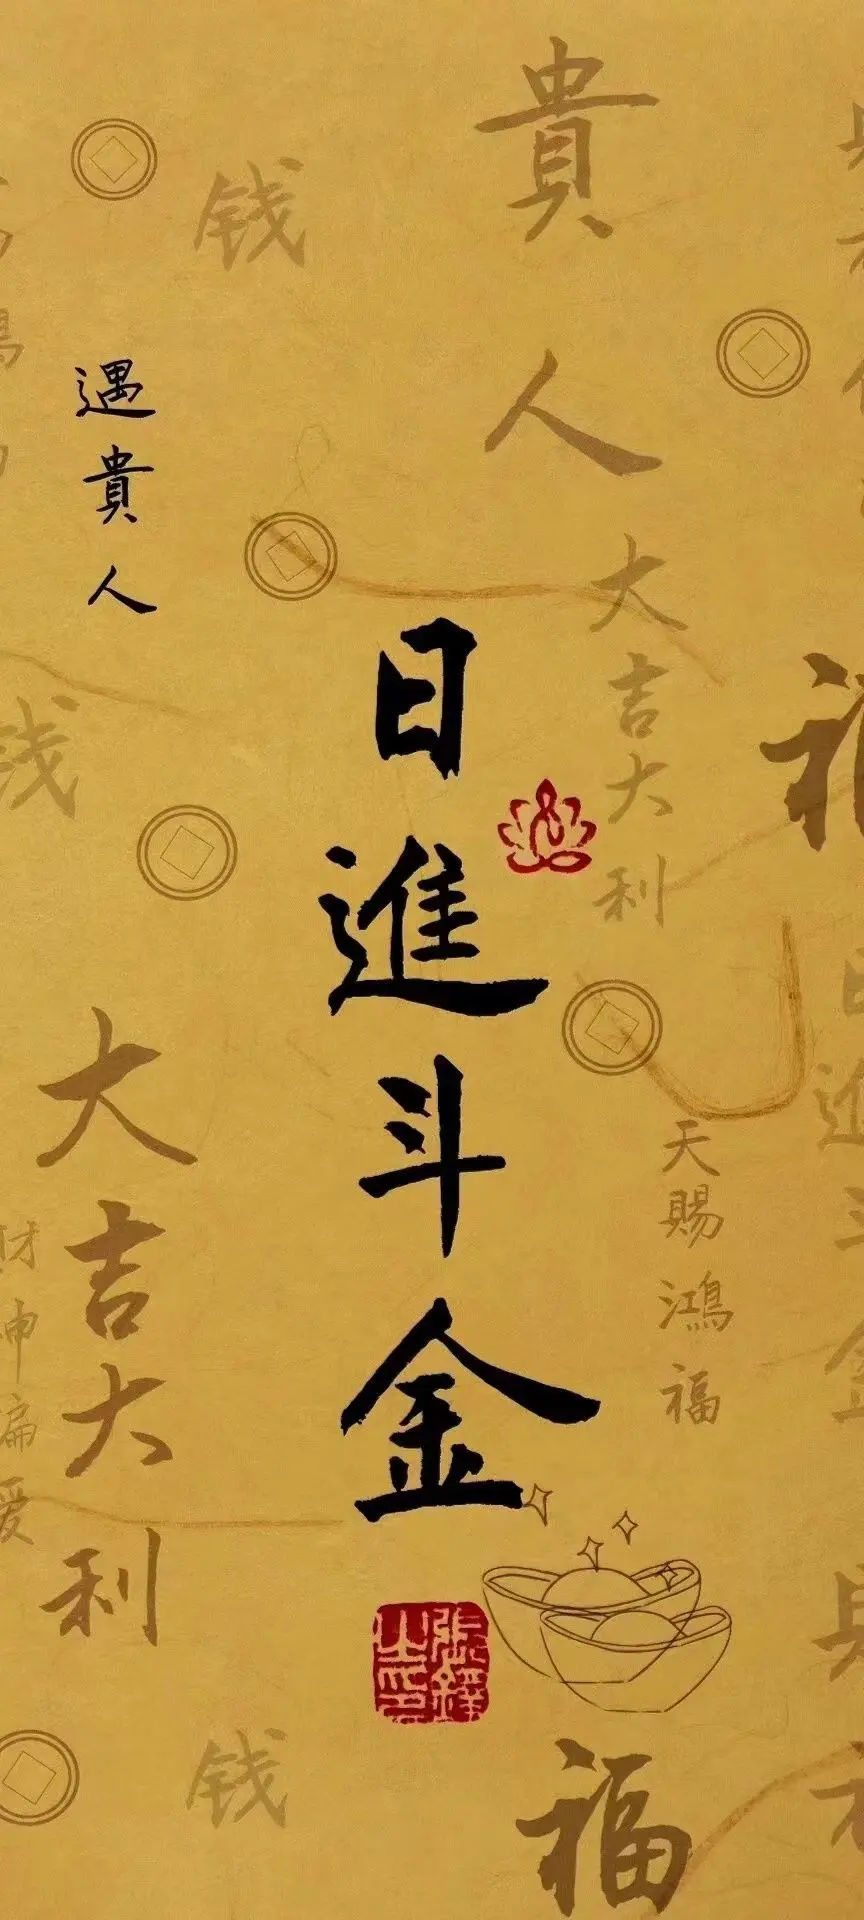 貴人
钱
遇貴人
大吉大利
钱
日進斗金
福
大吉大利
天賜鴻福
日進斗金
財神偏爱
钱
福